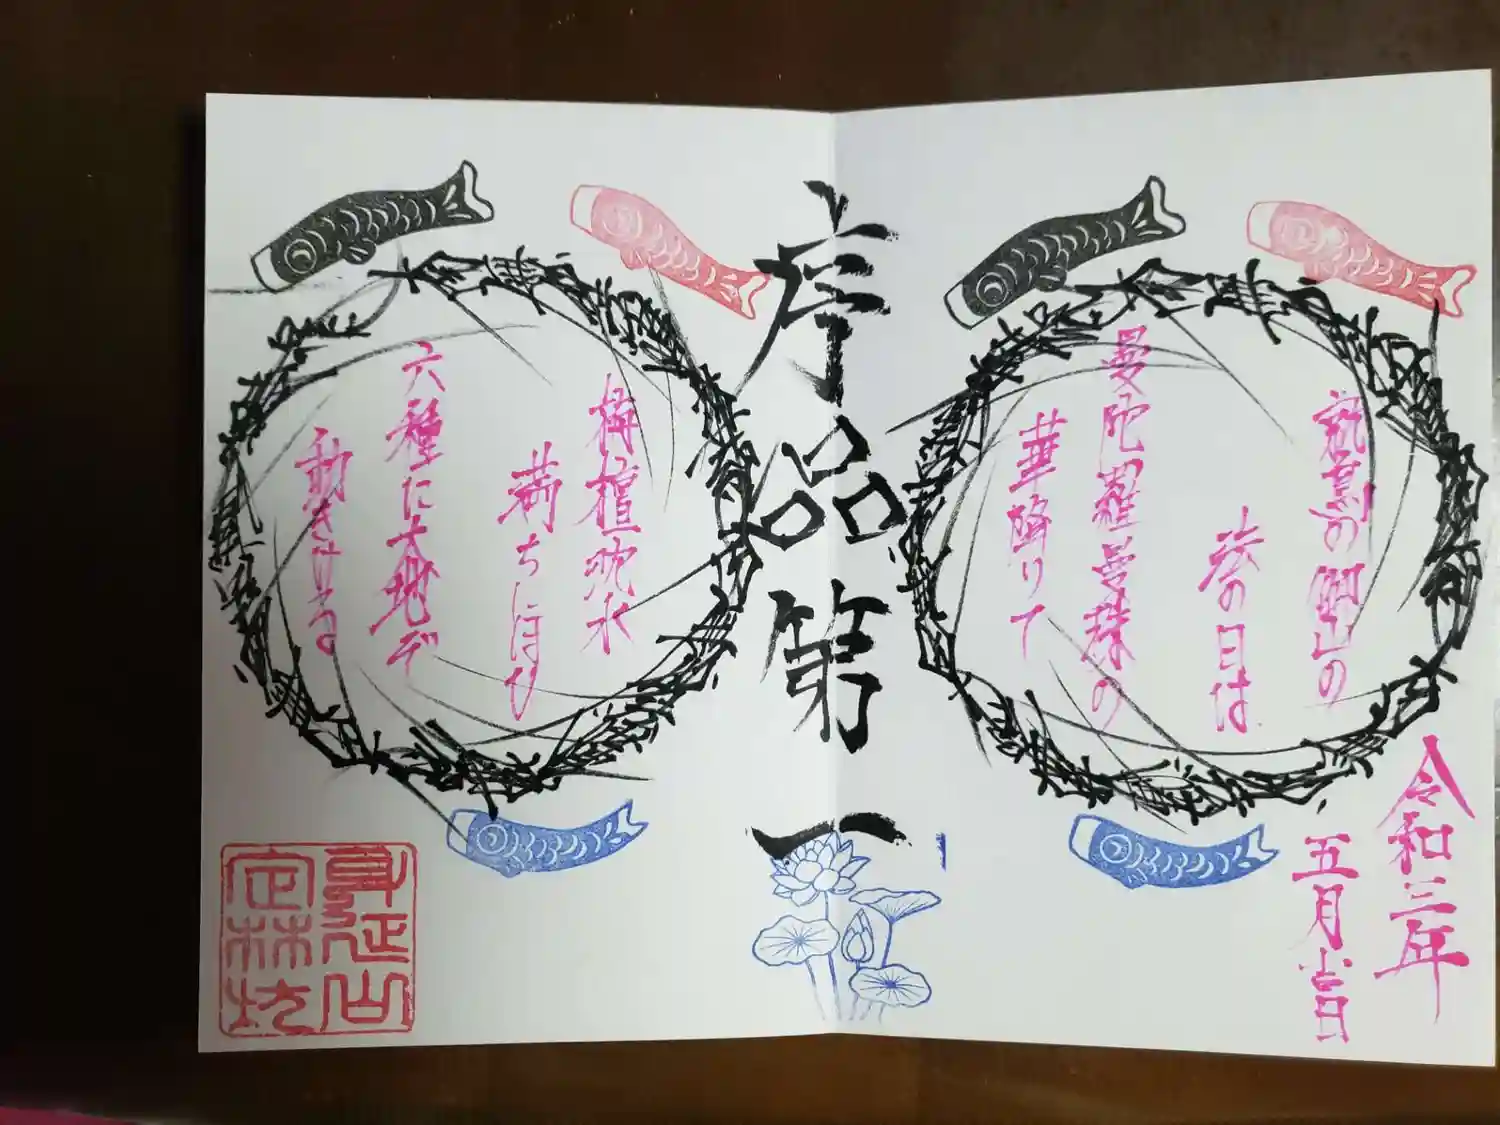 鷲の御山の
法の日は
曼陀羅曼珠の
華降りて
序品第一
栴檀沈水
満ちにほひ
六種に大地ぞ
動きける
令和三年
五月吉日
身延山
定林坊